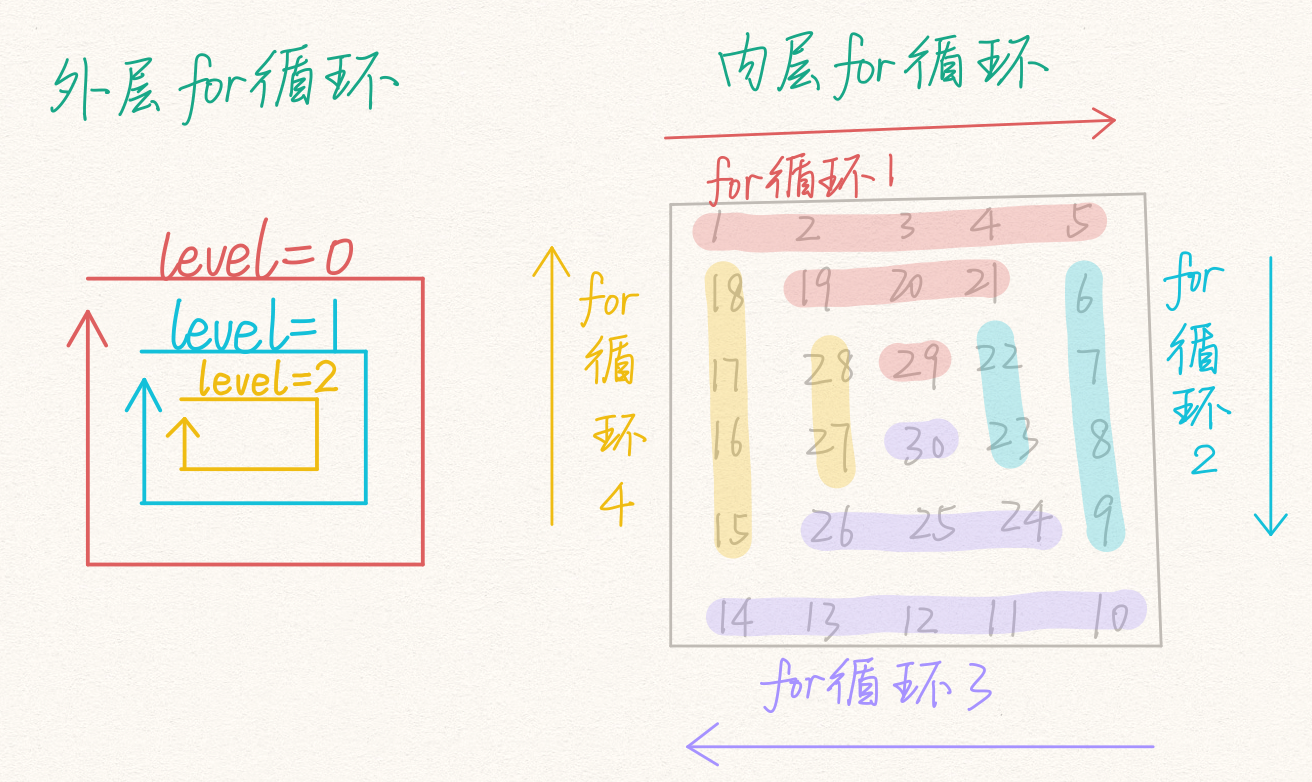 外层for循环
内层for循环
level=0
level=1
level=2
for循环1
1 2 3 4 5
18 19 20 21 6
17 28 29 22 7
16 27 30 23 8
15 26 25 24 9
14 13 12 11 10
for循环4
for循环2
for循环3